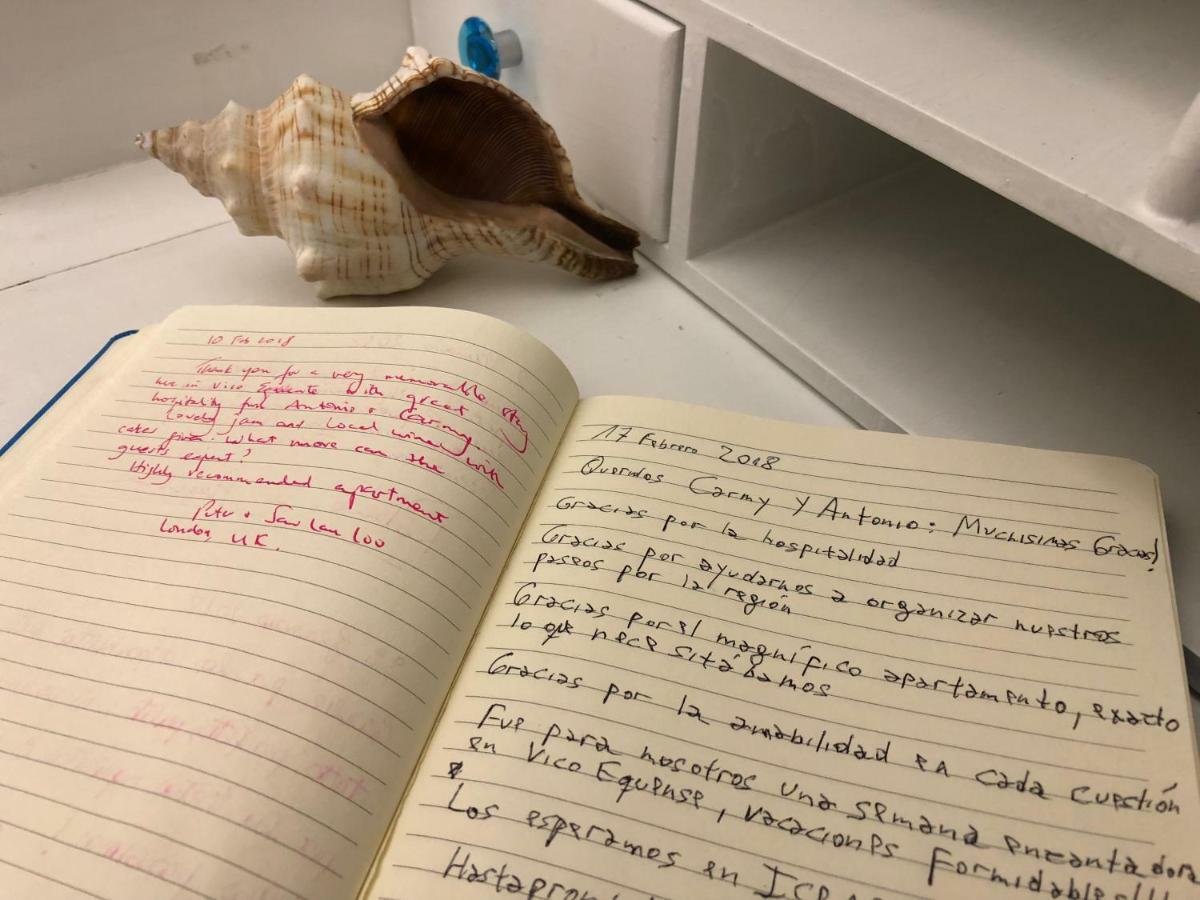 10 Feb 2018
Thank you for a very memorable stay
here in Vico Equense with great
hospitality from Antonio & Carmy.
Lovely jam and local wine with
cakes given. What more can the
guests expect?
Highly recommended apartment
Peter & Saw Lan Loo
London, UK.
17 Febrero 2018
Queridos Carmy y Antonio: Muchisimas Gracias!
Gracias por la hospitalidad
Gracias por ayudarnos a organizar nuestros
paseos por la región
Gracias por el magnífico apartamento, exacto
lo que necesitábamos
Gracias por la amabilidad en cada cuestión
Fue para nosotros una semana encantadora
en Vico Equense, vacaciones formidables!!!
Los esperamos en
Hasta